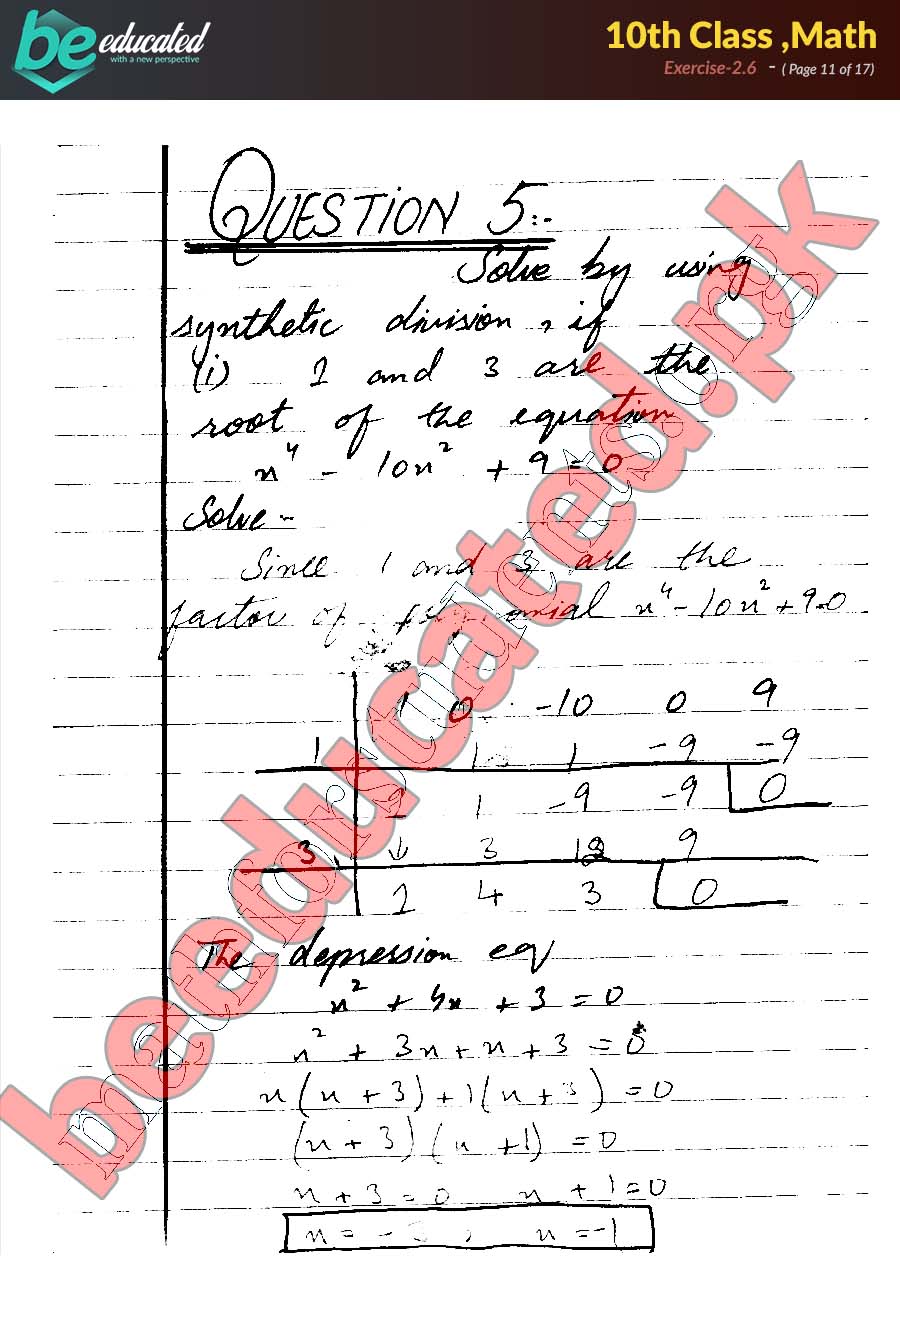 be educated
with a new perspective
10th Class ,Math
Exercise-2.6 - ( Page 11 of 17)
QUESTION 5:-
Solve by using
synthetic division, if
(i) 1 and 3 are the
root of the equation
x⁴ - 10x² + 9 = 0
Solve -
Since 1 and 3 are the
factor of x⁴ - 10x² + 9=0
1 0 -10 0 9
1 1 1 -9 -9
1 1 -9 -9 0
3 ↓ 3 12 9
1 4 3 0
The depression eq
x² + 4x + 3 = 0
x² + 3x + x + 3 = 0
x(x + 3) + 1(x + 3) = 0
(x + 3)(x + 1) = 0
x + 3 = 0 x + 1 = 0
x = -3, x = -1
beeducated.pk